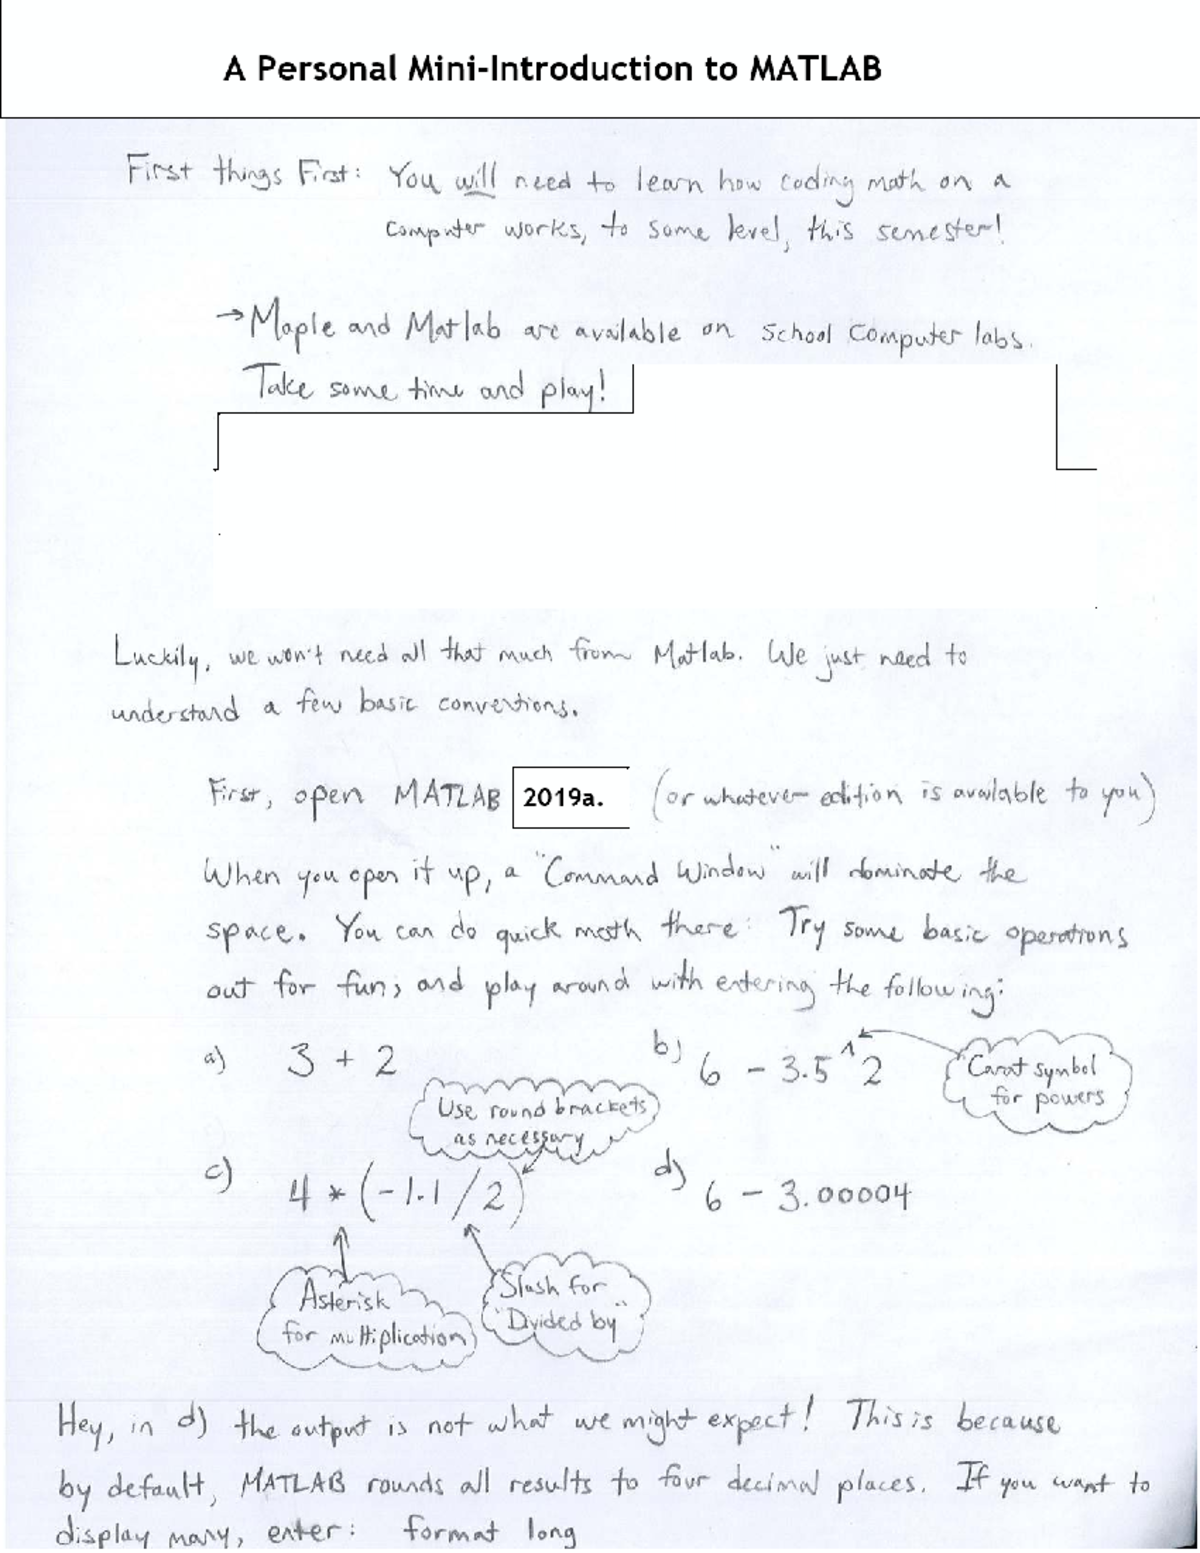 A Personal Mini-Introduction to MATLAB
First things First: You will need to learn how coding math on a
computer works, to some level, this semester!
→ Maple and Matlab are available on School Computer labs.
Take some time and play!
Luckily, we won't need all that much from Matlab. We just need to
understand a few basic conventions.
First, open MATLAB 2019a. (or whatever edition is available to you)
When you open it up, a "Command Window" will dominate the
space. You can do quick math there: Try some basic operations
out for fun, and play around with entering the following:
a) 3 + 2 b) 6 - 3.5^2 Carat symbol
for powers
Use round brackets
as necessary
c) 4 * (-1.1/2) d) 6 - 3.00004
Asterisk
for multiplication
Slash for
"Divided by"
Hey, in d) the output is not what we might expect! This is because
by default, MATLAB rounds all results to four decimal places. If you want to
display many, enter: format long